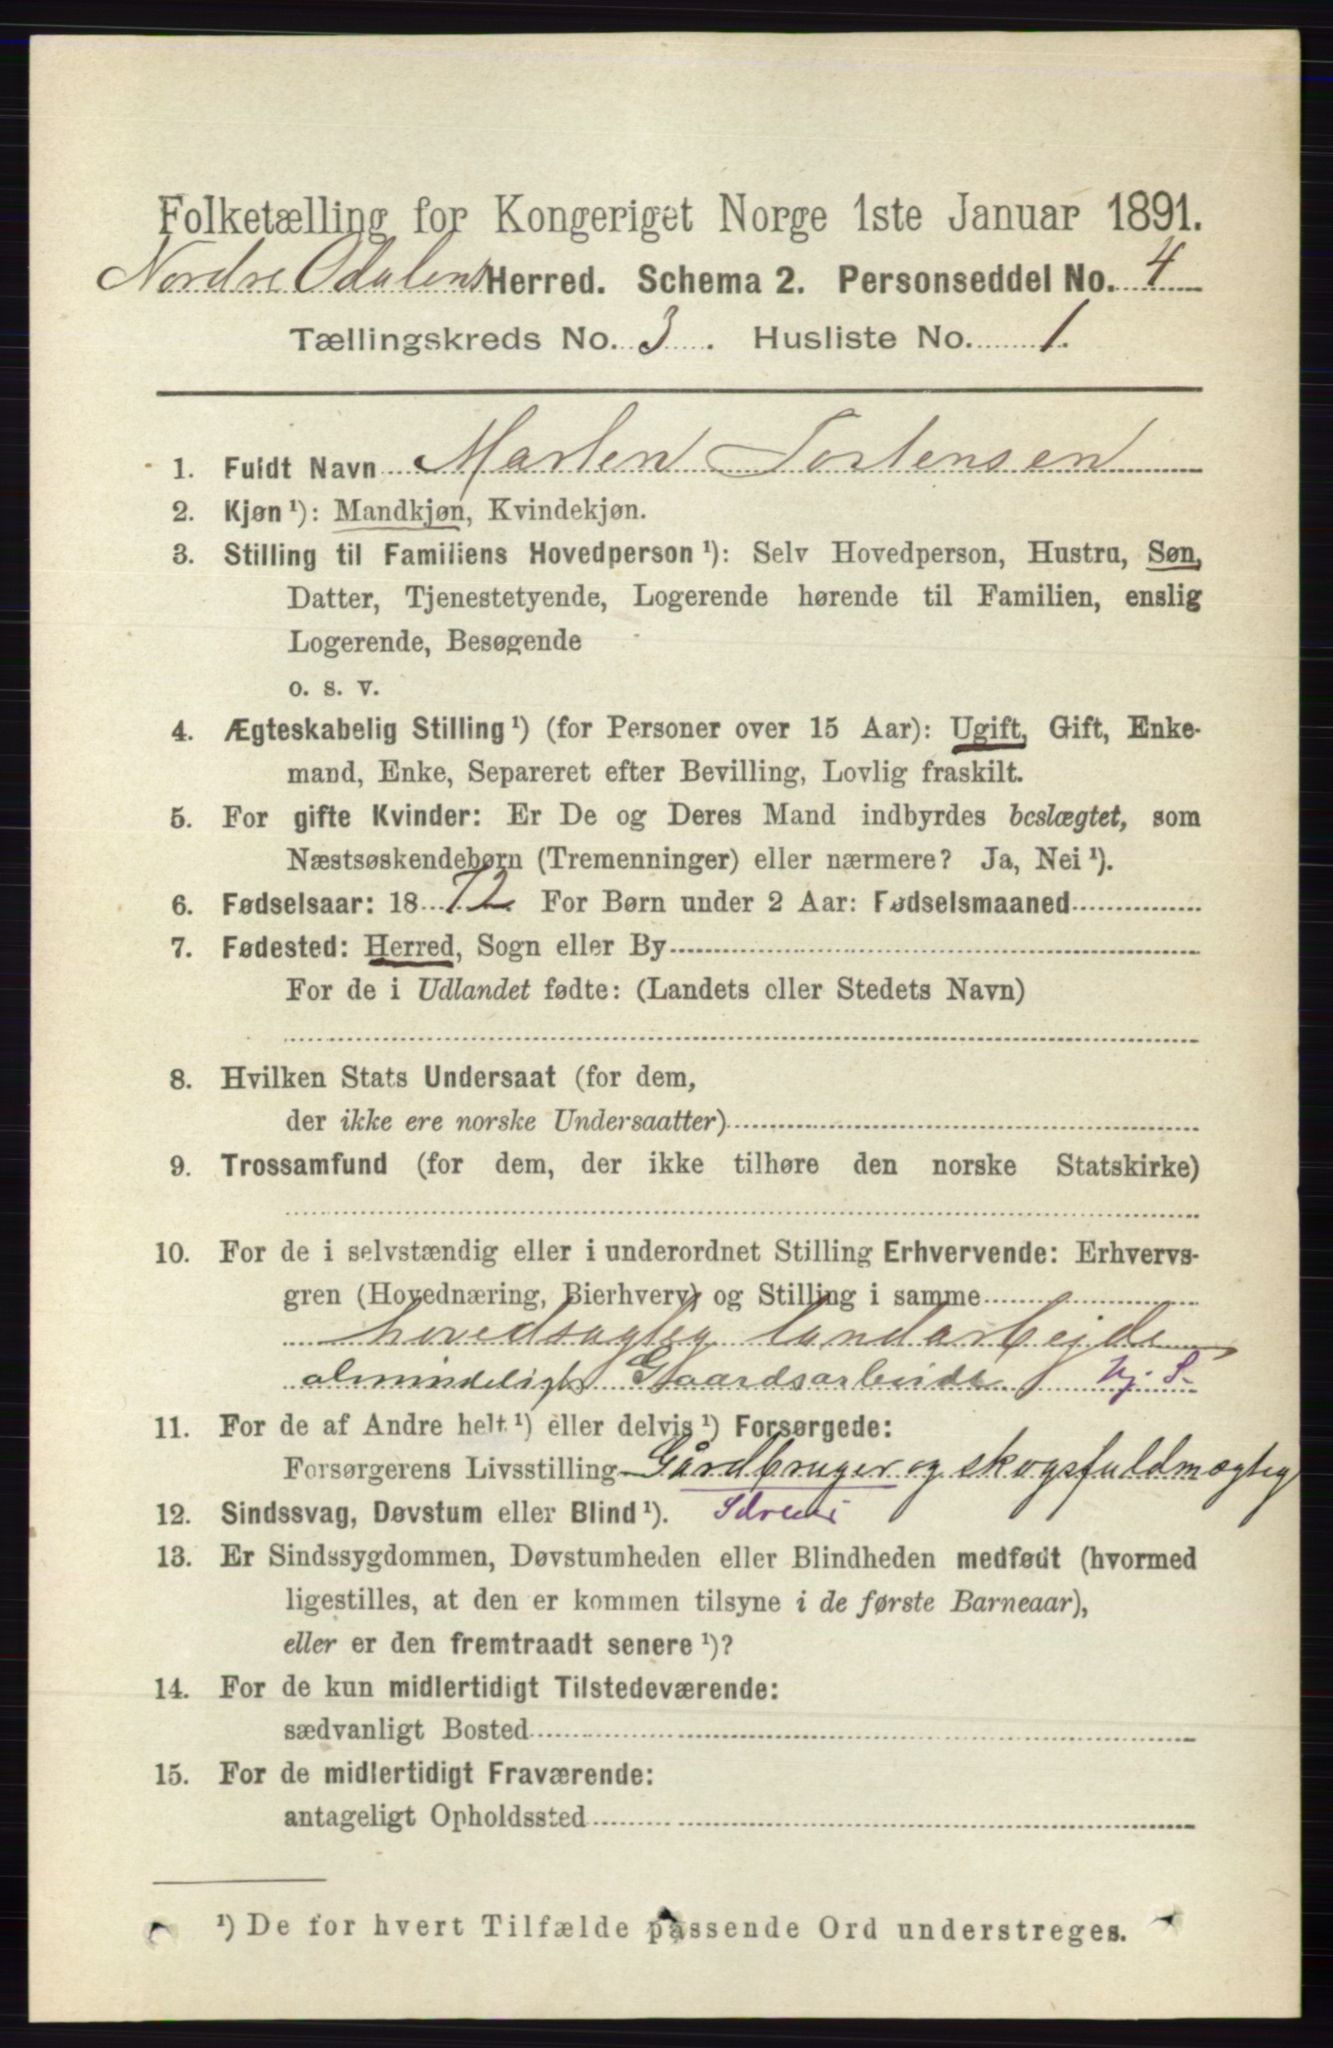 Folketælling for Kongeriget Norge 1ste Januar 1891.
Nordre Odalens Herred. Schema 2. Personseddel No. 4
Tællingskreds No. 3. Husliste No. 1.
1. Fuldt Navn Marten Tortensen
2. Kjøn ¹): Mandkjøn, Kvindekjøn.
3. Stilling til Familiens Hovedperson ¹): Selv Hovedperson, Hustru, Søn,
Datter, Tjenestetyende, Logerende hørende til Familien, enslig
Logerende, Besøgende
o. s. v.
4. Ægteskabelig Stilling ¹) (for Personer over 15 Aar): Ugift, Gift, Enke-
mand, Enke, Separeret efter Bevilling, Lovlig fraskilt.
5. For gifte Kvinder: Er De og Deres Mand indbyrdes beslægtet, som
Næstsøskendebørn (Tremenninger) eller nærmere? Ja, Nei ¹).
6. Fødselsaar: 1872 For Børn under 2 Aar: Fødselsmaaned
7. Fødested: Herred, Sogn eller By
For de i Udlandet fødte: (Landets eller Stedets Navn)
8. Hvilken Stats Undersaat (for dem,
der ikke ere norske Undersaatter)
9. Trossamfund (for dem, der ikke tilhøre den norske Statskirke)
10. For de i selvstændig eller i underordnet Stilling Erhvervende: Erhvervs-
gren (Hovednæring, Bierhverv) og Stilling i samme
hovedsagleg landarbejde
almindeligt Gaardsarbeide hj. S.
11. For de af Andre helt ¹) eller delvis ¹) Forsørgede:
Forsørgerens Livsstilling Gårdbruger og skogsfuldmægtig
12. Sindssvag, Døvstum eller Blind ¹).
13. Er Sindssygdommen, Døvstumheden eller Blindheden medfødt (hvormed
ligestilles, at den er kommen tilsyne i de første Barneaar),
eller er den fremtraadt senere ¹)?
14. For de kun midlertidigt Tilstedeværende:
sædvanligt Bosted
15. For de midlertidigt Fraværende:
antageligt Opholdssted
¹) De for hvert Tilfælde passende Ord understreges.